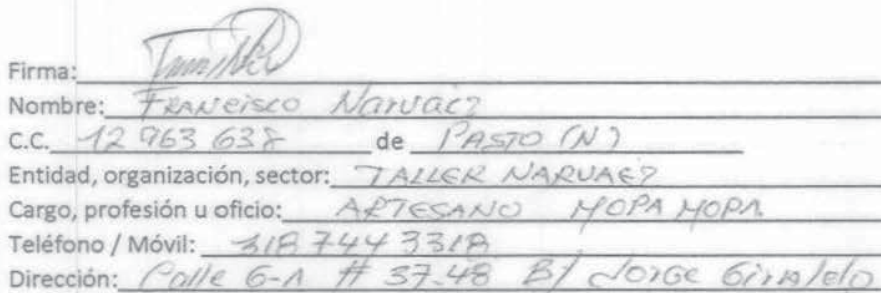 Firma:
Nombre: FRANCISCO Narvaez
C.C. 12 963 638 de PASTO (N)
Entidad, organización, sector: TALLER NARVAEZ
Cargo, profesión u oficio: ARTESANO MOPA MOPA
Teléfono / Móvil: 318 744 3318
Dirección: Calle 6-A # 37-48 B/ Jorge Giraldo